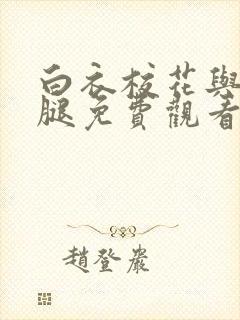 白衣校花與
腿免費觀看
趙登巖